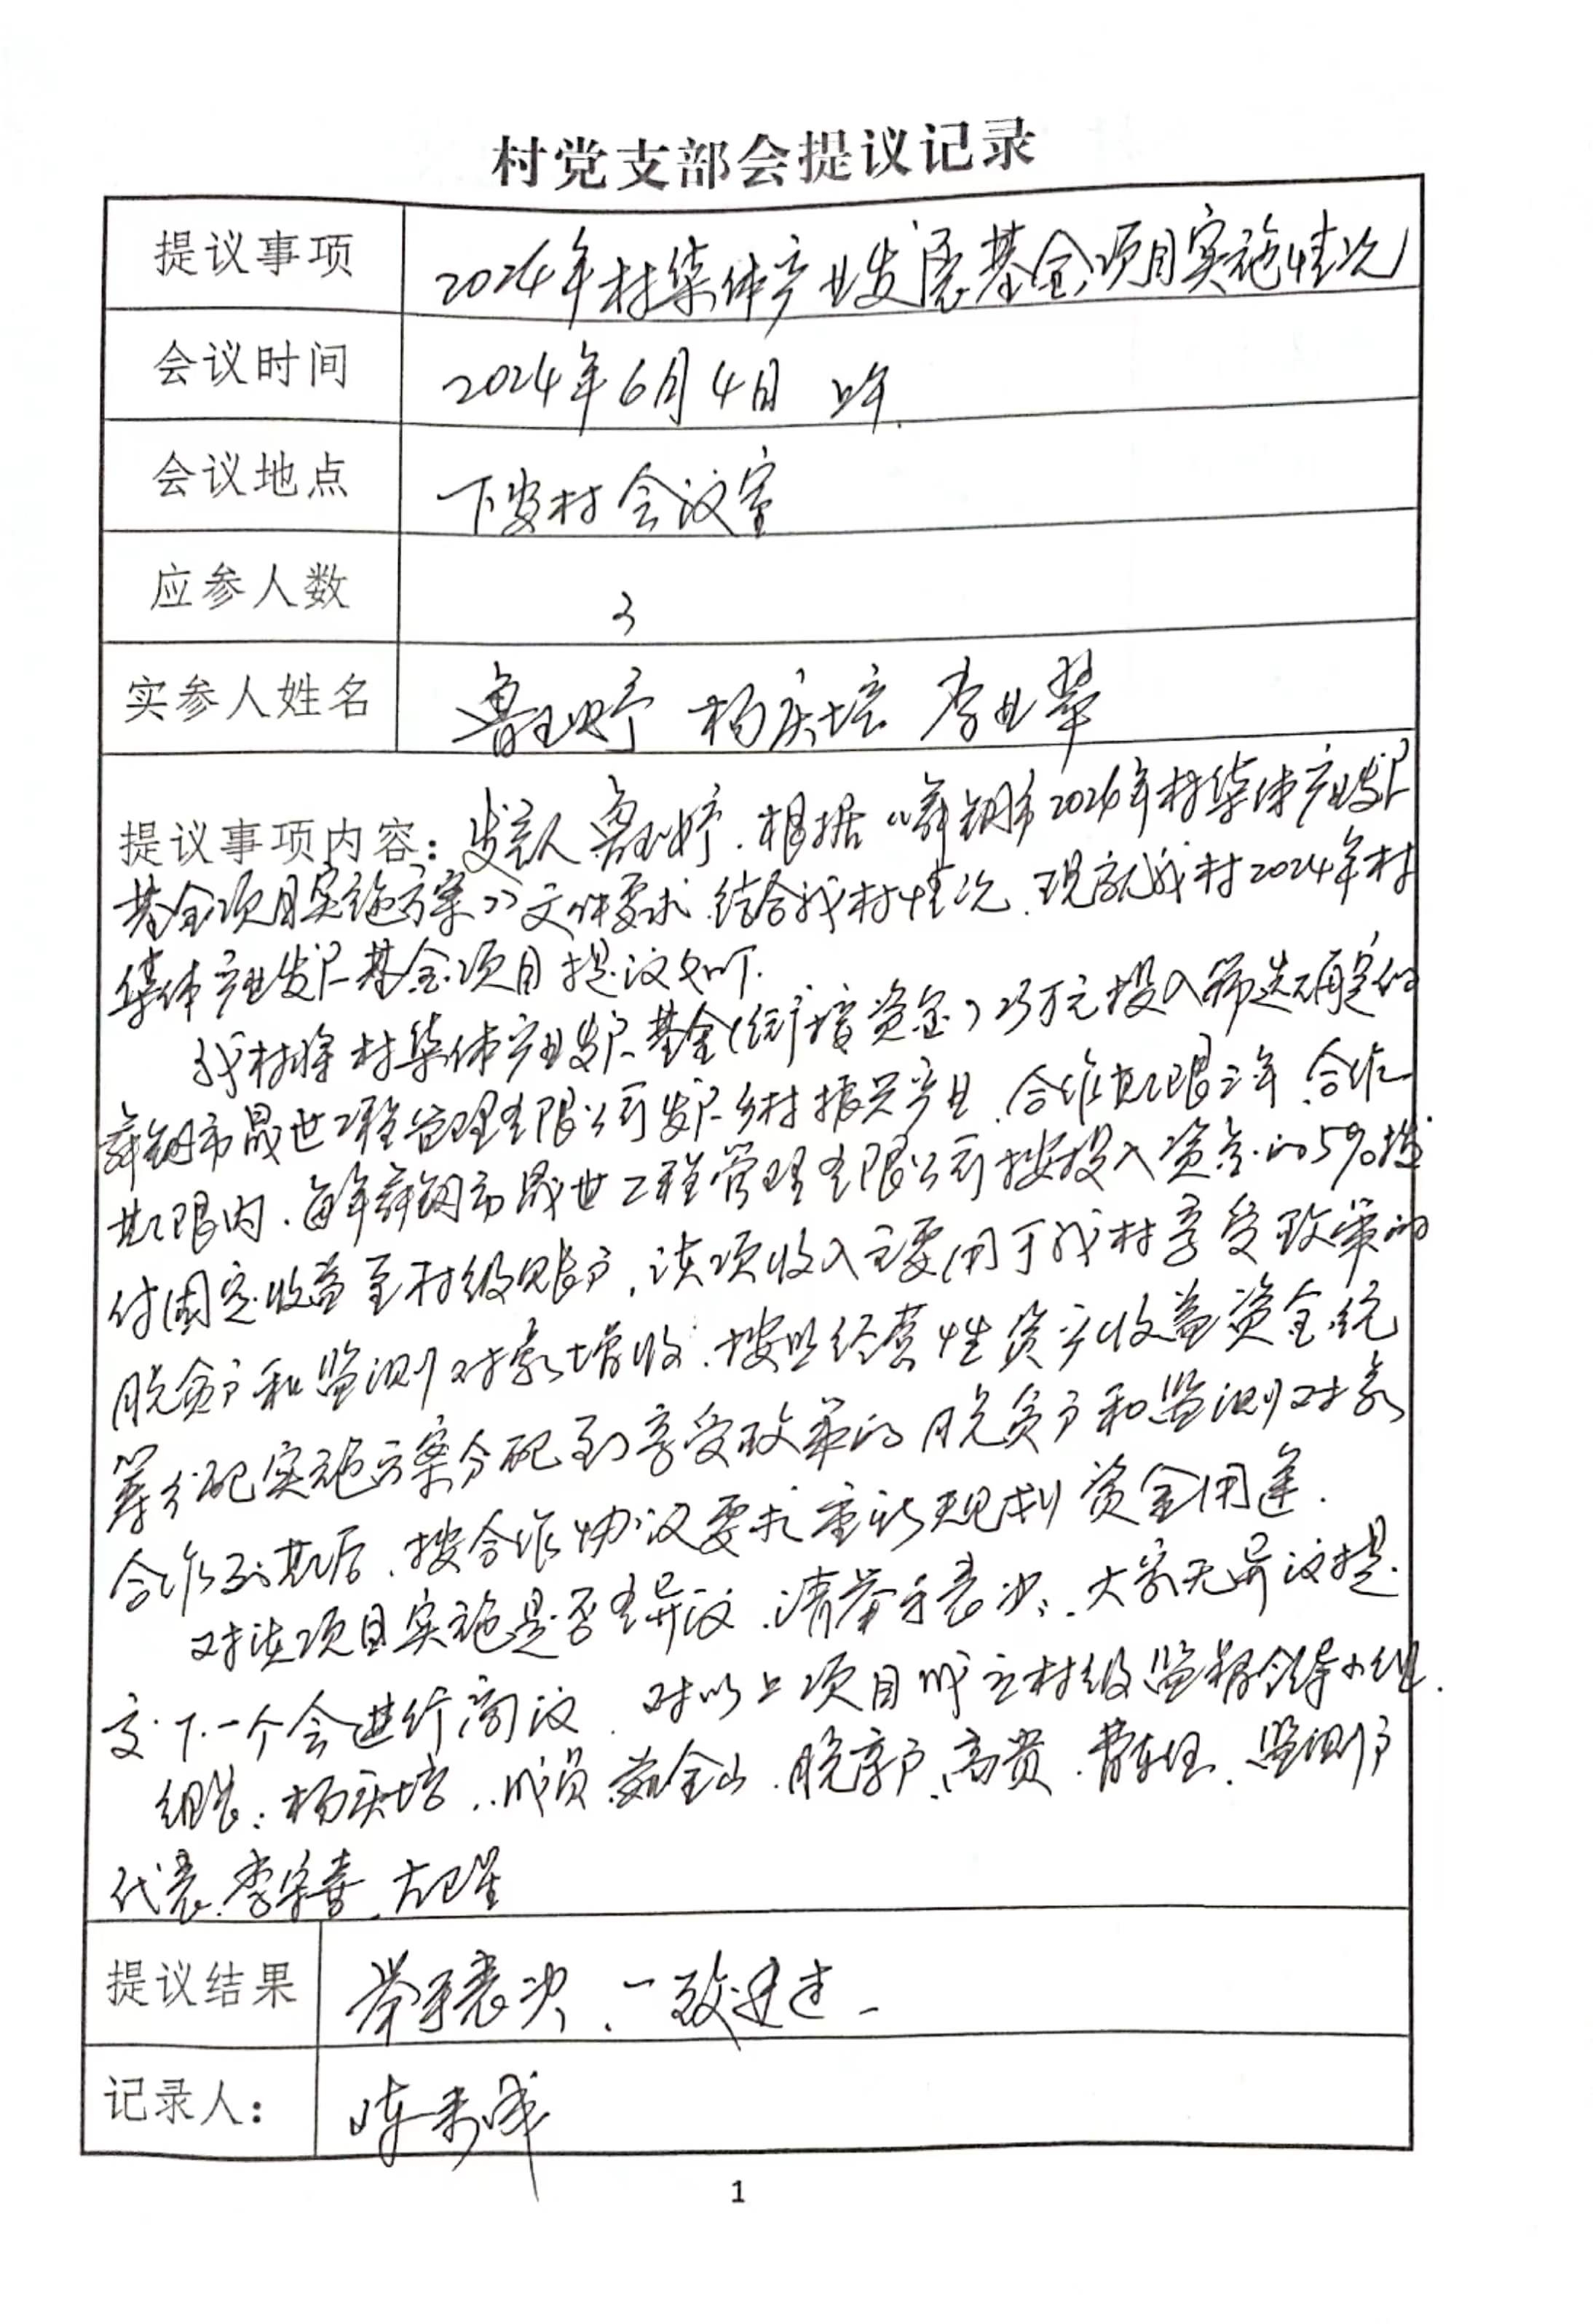 村党支部会提议记录
提议事项 2024年村集体产业发展基金项目实施情况
会议时间 2024年6月4日 上午
会议地点 下安村会议室
应参人数 3
实参人姓名 鲁玉婷 杨庆培 李业翠
提议事项内容：发言人鲁玉婷.根据《舞钢市2024年村集体产业发展
基金项目实施方案》文件要求.结合我村情况.现就我村2024年村
集体产业发展基金项目提议如下.
我村将村集体产业发展基金(衔接资金)25万元投入筛选确定的
舞钢市晟世工程管理有限公司发展乡村振兴产业.合作期限三年.合作
期限内.每年舞钢市晟世工程管理有限公司按投入资金的5%拨
付固定收益至村级账户,该项收入主要用于我村享受政策的
脱贫户和监测对象增收.按照经营性资产收益资金统
筹分配实施方案分配到享受政策的脱贫户和监测对象
合作到期后.按合作协议要求重新规划资金用途.
对该项目实施是否有异议.请举手表决.大家无异议提
交下一个会进行商议.对以上项目成立村级监督领导小组.
组长:杨庆培.成员 金山.脱贫户.高贵.曹 .监测户
代表.李宗喜.
提议结果 举手表决.一致通过
记录人： 陈
1